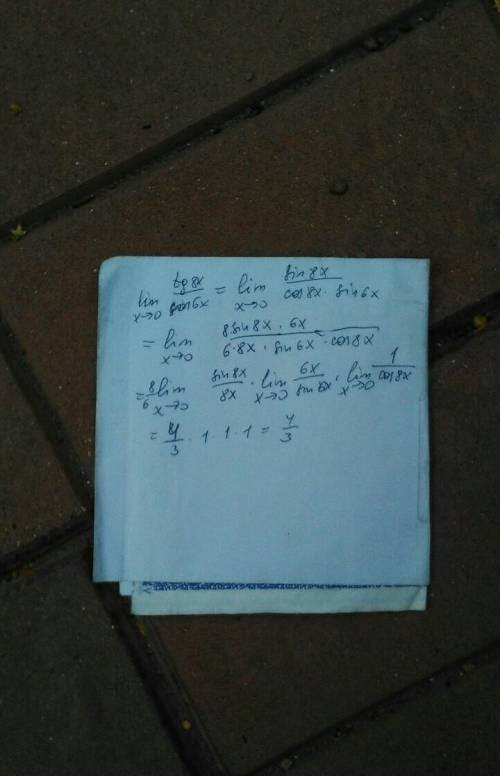 lim x→0 tg8x / sin6x = lim x→0 sin8x / cos8x · sin6x
= lim x→0 8 sin8x · 6x / 6 · 8x · sin6x · cos8x
= 8/6 lim x→0 sin8x / 8x · lim x→0 6x / sin6x · lim x→0 1 / cos8x
= 4/3 · 1 · 1 · 1 = 4/3